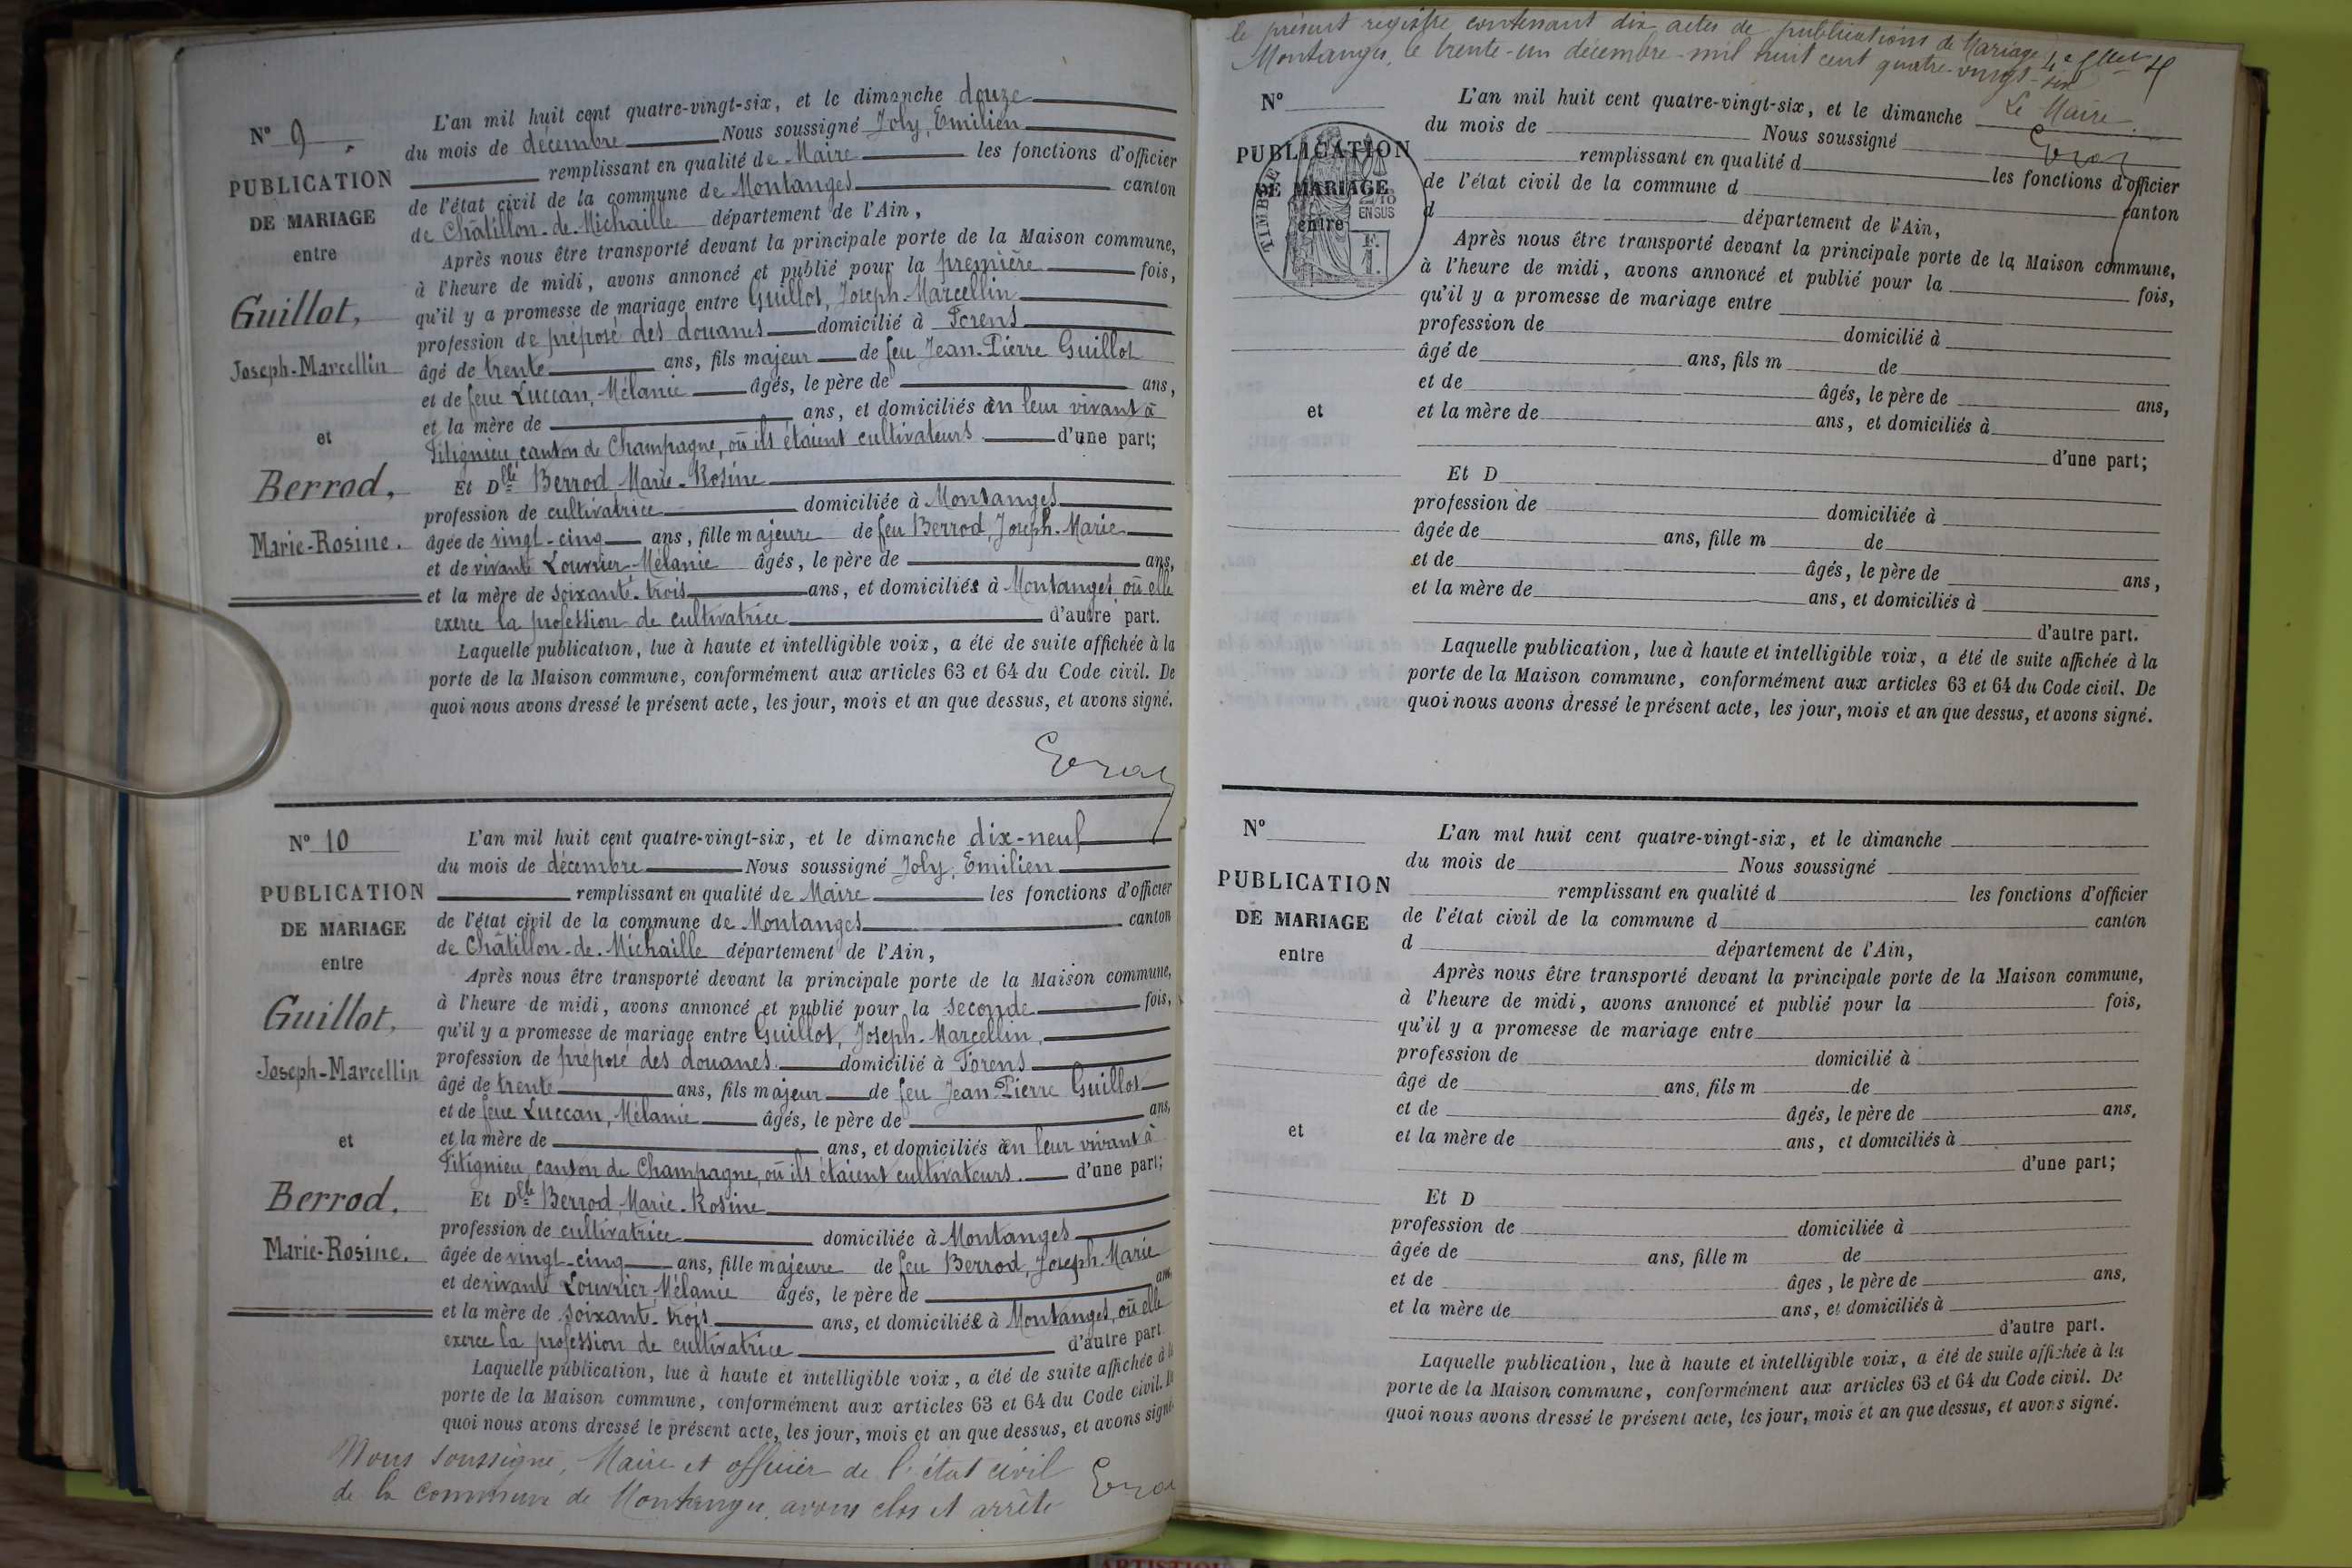 N° 9
PUBLICATION
DE MARIAGE
entre
Guillot,
Joseph-Marcellin
et
Berrod,
Marie-Rosine.
L'an mil huit cent quatre-vingt-six, et le dimanche douze
du mois de décembre Nous soussigné Joly, Emilien
remplissant en qualité de Maire les fonctions d'officier
de l'état civil de la commune de Montanges canton
de Châtillon-de-Michaille département de l'Ain,
Après nous être transporté devant la principale porte de la Maison commune,
à l'heure de midi, avons annoncé et publié pour la première fois,
qu'il y a promesse de mariage entre Guillot, Joseph-Marcellin
profession de préposé des douanes domicilié à Forens
âgé de trente ans, fils majeur de feu Jean-Pierre Guillot
et de feue Luccan, Mélanie âgés, le père de ans,
et la mère de ans, et domiciliés en leur vivant à
Fitignieu, canton de Champagne, où ils étaient cultivateurs d'une part;
Et Dlle Berrod, Marie-Rosine
profession de cultivatrice domiciliée à Montanges
âgée de vingt-cinq ans, fille majeure de feu Berrod, Joseph-Marie
et de vivante Louvrier, Mélanie âgés, le père de ans,
et la mère de soixante-trois ans, et domiciliés à Montanges, où elle
exerce la profession de cultivatrice d'autre part.
Laquelle publication, lue à haute et intelligible voix, a été de suite affichée à la
porte de la Maison commune, conformément aux articles 63 et 64 du Code civil. De
quoi nous avons dressé le présent acte, les jour, mois et an que dessus, et avons signé.
N° 10
PUBLICATION
DE MARIAGE
entre
Guillot,
Joseph-Marcellin
et
Berrod,
Marie-Rosine.
L'an mil huit cent quatre-vingt-six, et le dimanche dix-neuf
du mois de décembre Nous soussigné Joly, Emilien
remplissant en qualité de Maire les fonctions d'officier
de l'état civil de la commune de Montanges canton
de Châtillon-de-Michaille département de l'Ain,
Après nous être transporté devant la principale porte de la Maison commune,
à l'heure de midi, avons annoncé et publié pour la seconde fois,
qu'il y a promesse de mariage entre Guillot, Joseph-Marcellin,
profession de préposé des douanes domicilié à Forens
âgé de trente ans, fils majeur de feu Jean-Pierre Guillot
et de feue Luccan, Mélanie âgés, le père de ans,
et la mère de ans, et domiciliés en leur vivant à
Fitignieu, canton de Champagne, où ils étaient cultivateurs. d'une part;
Et Dlle Berrod, Marie-Rosine
profession de cultivatrice domiciliée à Montanges
âgée de vingt-cinq ans, fille majeure de feu Berrod, Joseph-Marie
et de vivante Louvrier, Mélanie âgés, le père de ans
et la mère de soixante-trois ans, et domiciliée à Montanges, où elle
exerce la profession de cultivatrice d'autre part
Laquelle publication, lue à haute et intelligible voix, a été de suite affichée à la
porte de la Maison commune, conformément aux articles 63 et 64 du Code civil. De
quoi nous avons dressé le présent acte, les jour, mois et an que dessus, et avons signé
Nous soussigné, Maire et officier de l'état civil
de la commune de Montanges, avons clos et arrêté
le présent registre contenant dix actes de publications de Mariage
Montanges, le trente-un décembre mil huit cent quatre-vingt-six
Le Maire.
N°
PUBLICATION
DE MARIAGE
entre
et
TIMBRE
2/10
EN SUS
L'an mil huit cent quatre-vingt-six, et le dimanche
du mois de Nous soussigné
remplissant en qualité d les fonctions d'officier
de l'état civil de la commune d canton
d département de l'Ain,
Après nous être transporté devant la principale porte de la Maison commune,
à l'heure de midi, avons annoncé et publié pour la fois,
qu'il y a promesse de mariage entre
profession de domicilié à
âgé de ans, fils m de
et de âgés, le père de ans,
et la mère de ans, et domiciliés à
d'une part;
Et D
profession de domiciliée à
âgée de ans, fille m de
et de âgés, le père de ans,
et la mère de ans, et domiciliés à
d'autre part.
Laquelle publication, lue à haute et intelligible voix, a été de suite affichée à la
porte de la Maison commune, conformément aux articles 63 et 64 du Code civil. De
quoi nous avons dressé le présent acte, les jour, mois et an que dessus, et avons signé.
N°
PUBLICATION
DE MARIAGE
entre
et
L'an mil huit cent quatre-vingt-six, et le dimanche
du mois de Nous soussigné
remplissant en qualité d les fonctions d'officier
de l'état civil de la commune d canton
d département de l'Ain,
Après nous être transporté devant la principale porte de la Maison commune,
à l'heure de midi, avons annoncé et publié pour la fois,
qu'il y a promesse de mariage entre
profession de domicilié à
âgé de ans, fils m de
et de âgés, le père de ans,
et la mère de ans, et domiciliés à
d'une part;
Et D
profession de domiciliée à
âgée de ans, fille m de
et de âges, le père de ans,
et la mère de ans, et domiciliés à
d'autre part.
Laquelle publication, lue à haute et intelligible voix, a été de suite affichée à la
porte de la Maison commune, conformément aux articles 63 et 64 du Code civil. De
quoi nous avons dressé le présent acte, les jour, mois et an que dessus, et avons signé.